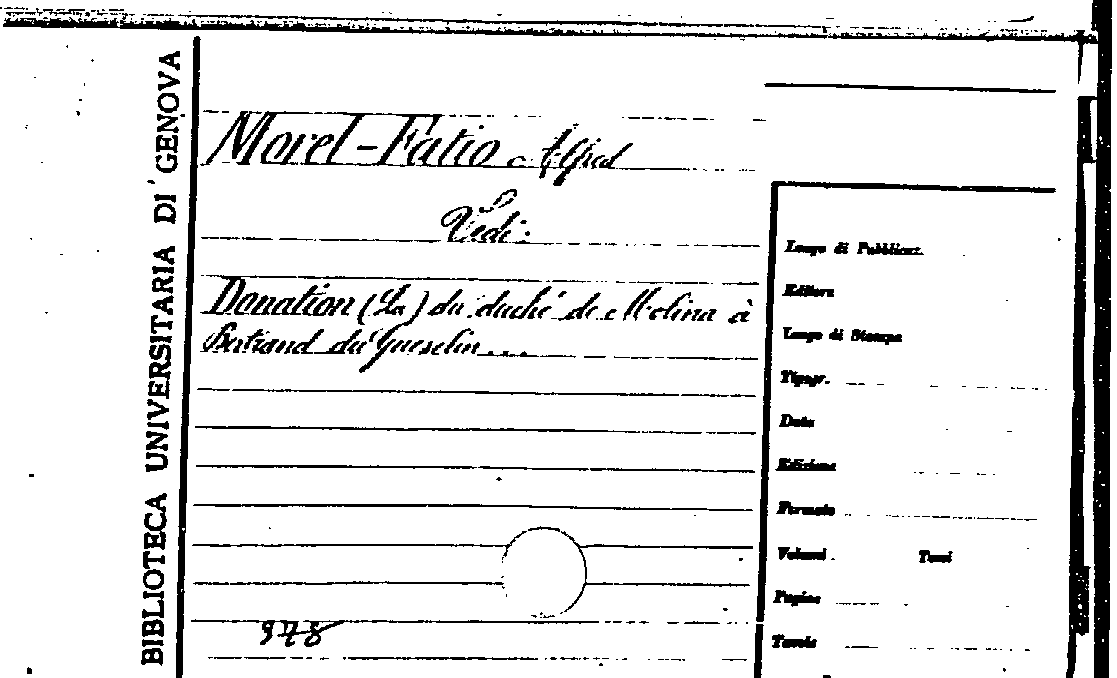 BIBLIOTECA UNIVERSITARIA DI GENOVA
Morel-Fatio Alfred
Vedi:
Donation (La) du duché de Molina à
Bertrand du Gueselin...
978
Luogo di Pubblicaz.
Editore
Luogo di Stampa
Tipogr.
Data
Edizione
Formato
Volumi Tomi
Pagine
Tavole